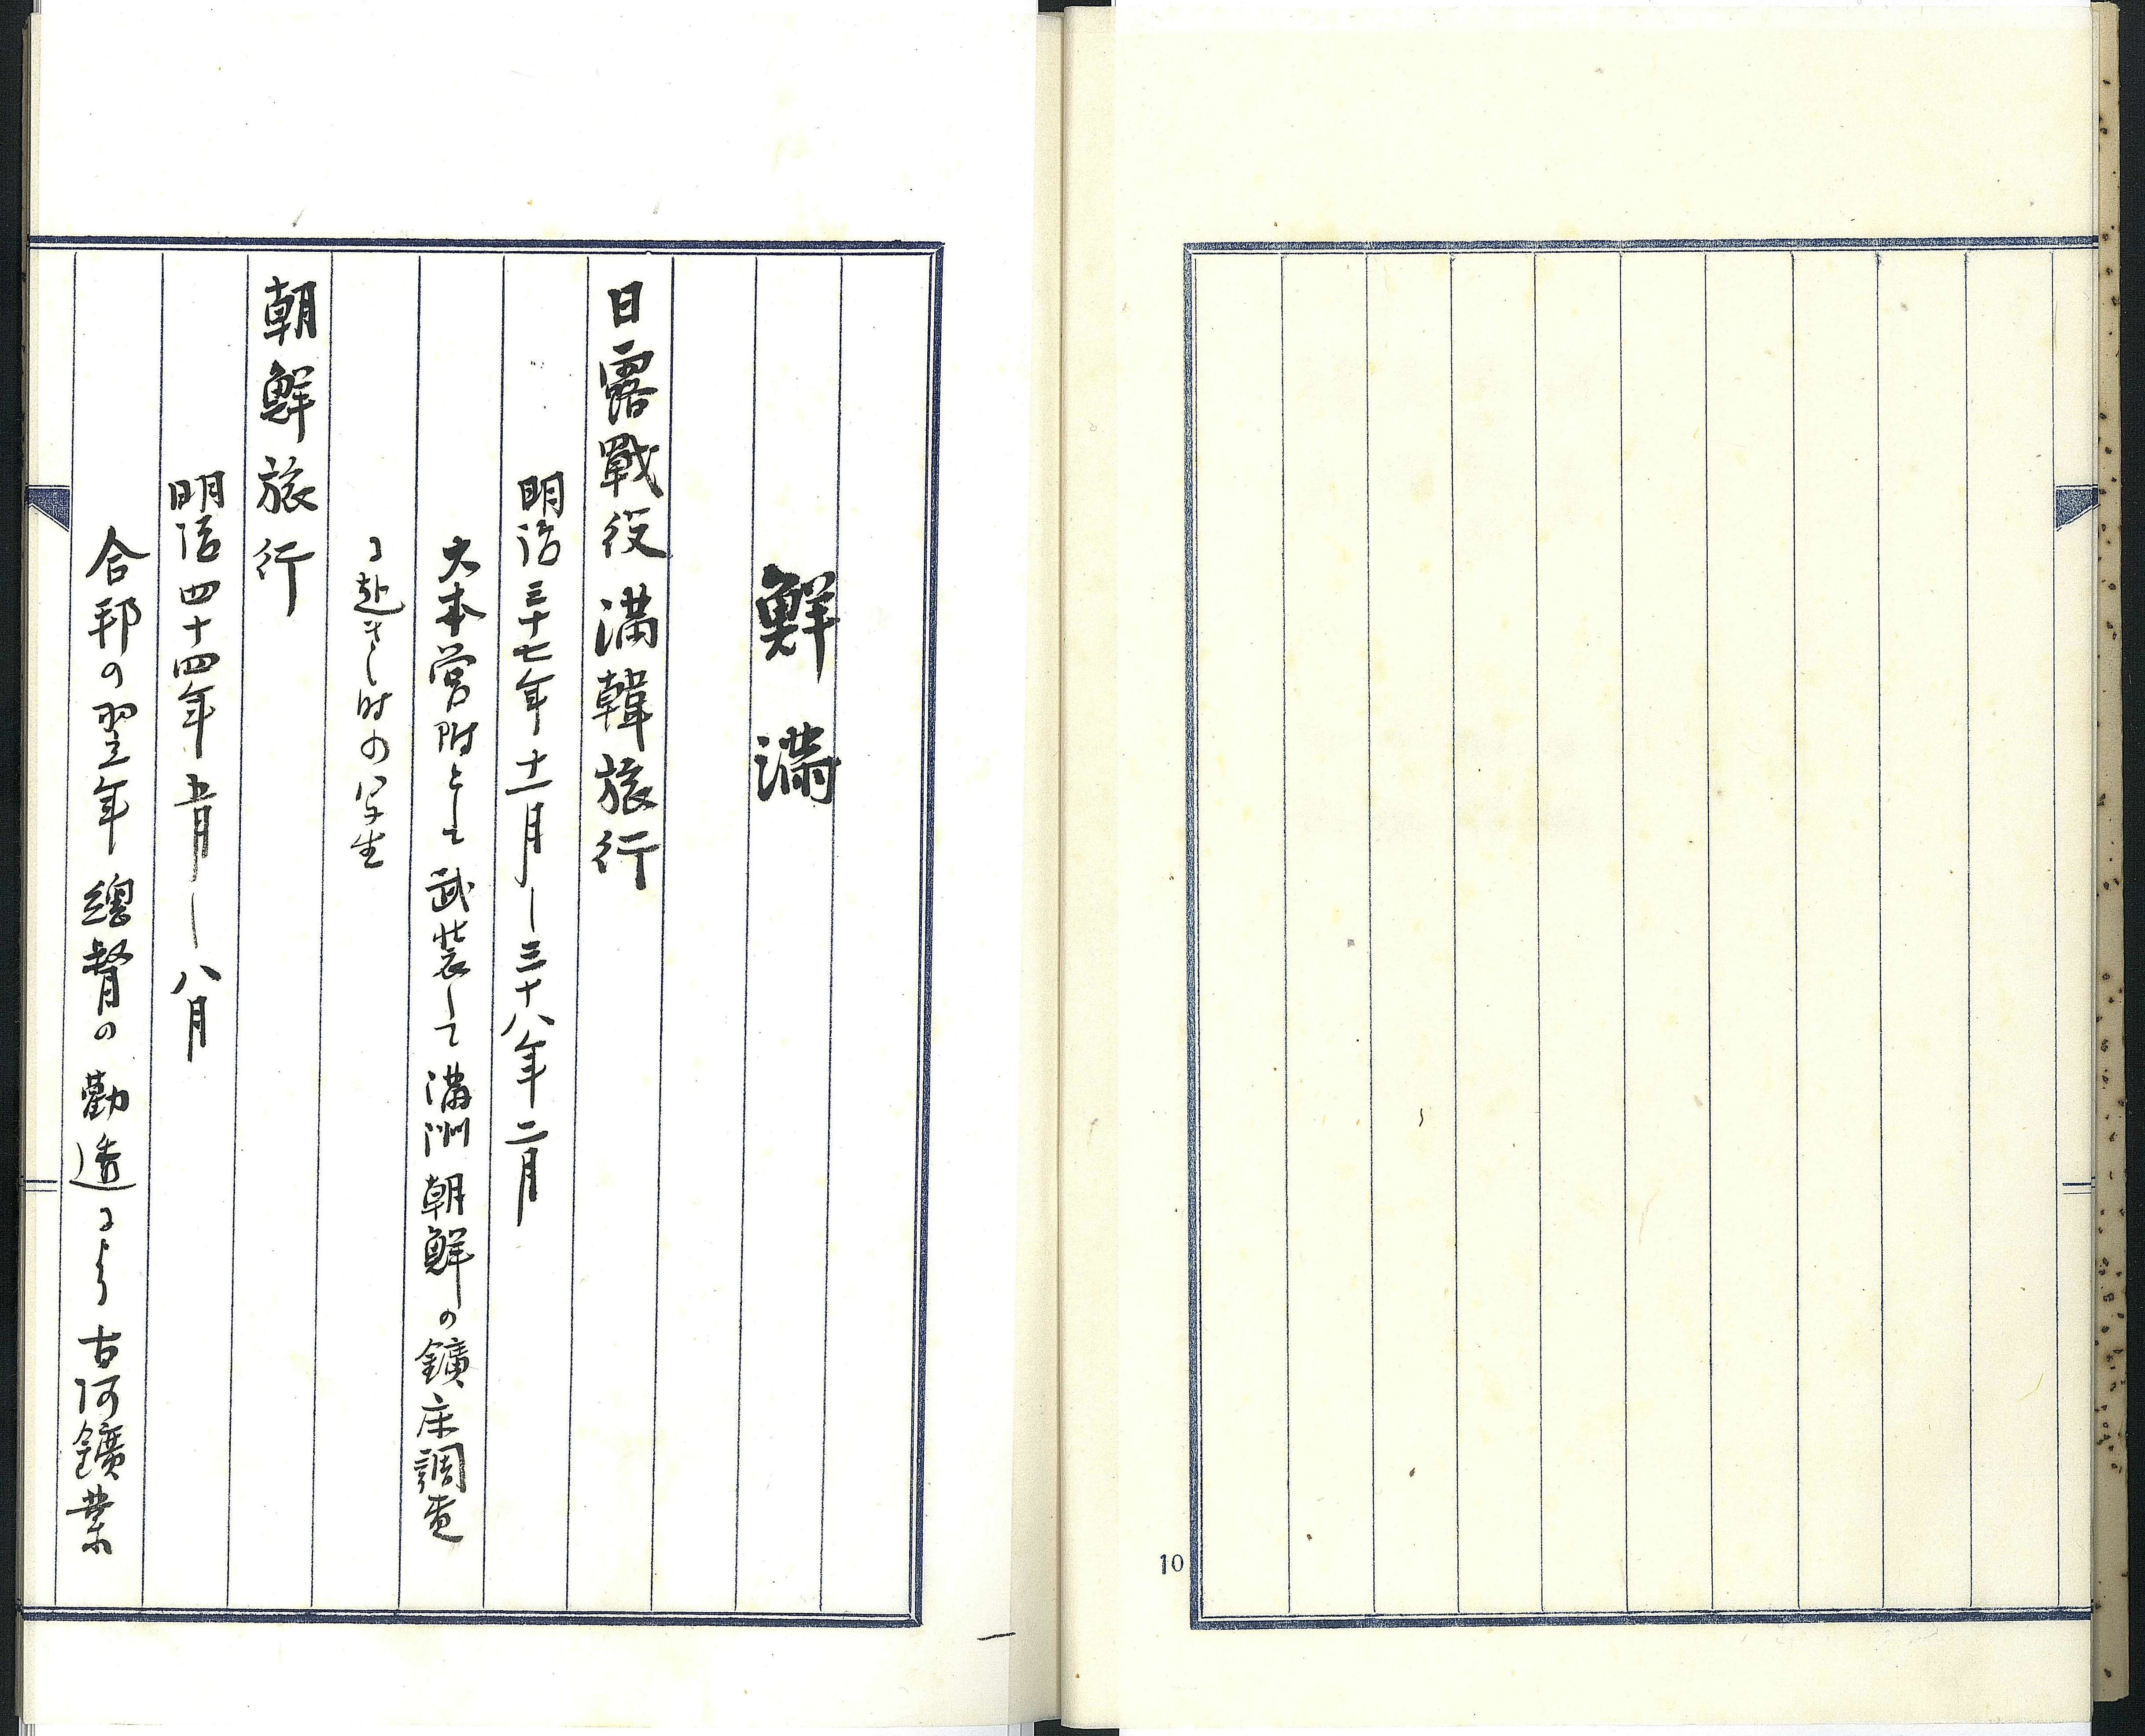 10
鮮満
日露戰役満韓旅行
明治三十七年十一月—三十八年二月
大本営附として武装して満洲朝鮮の鑛床調査
に赴きし時の写生
朝鮮旅行
明治四十四年五月—八月
合邦の翌年總督の勸により古河鑛業
一